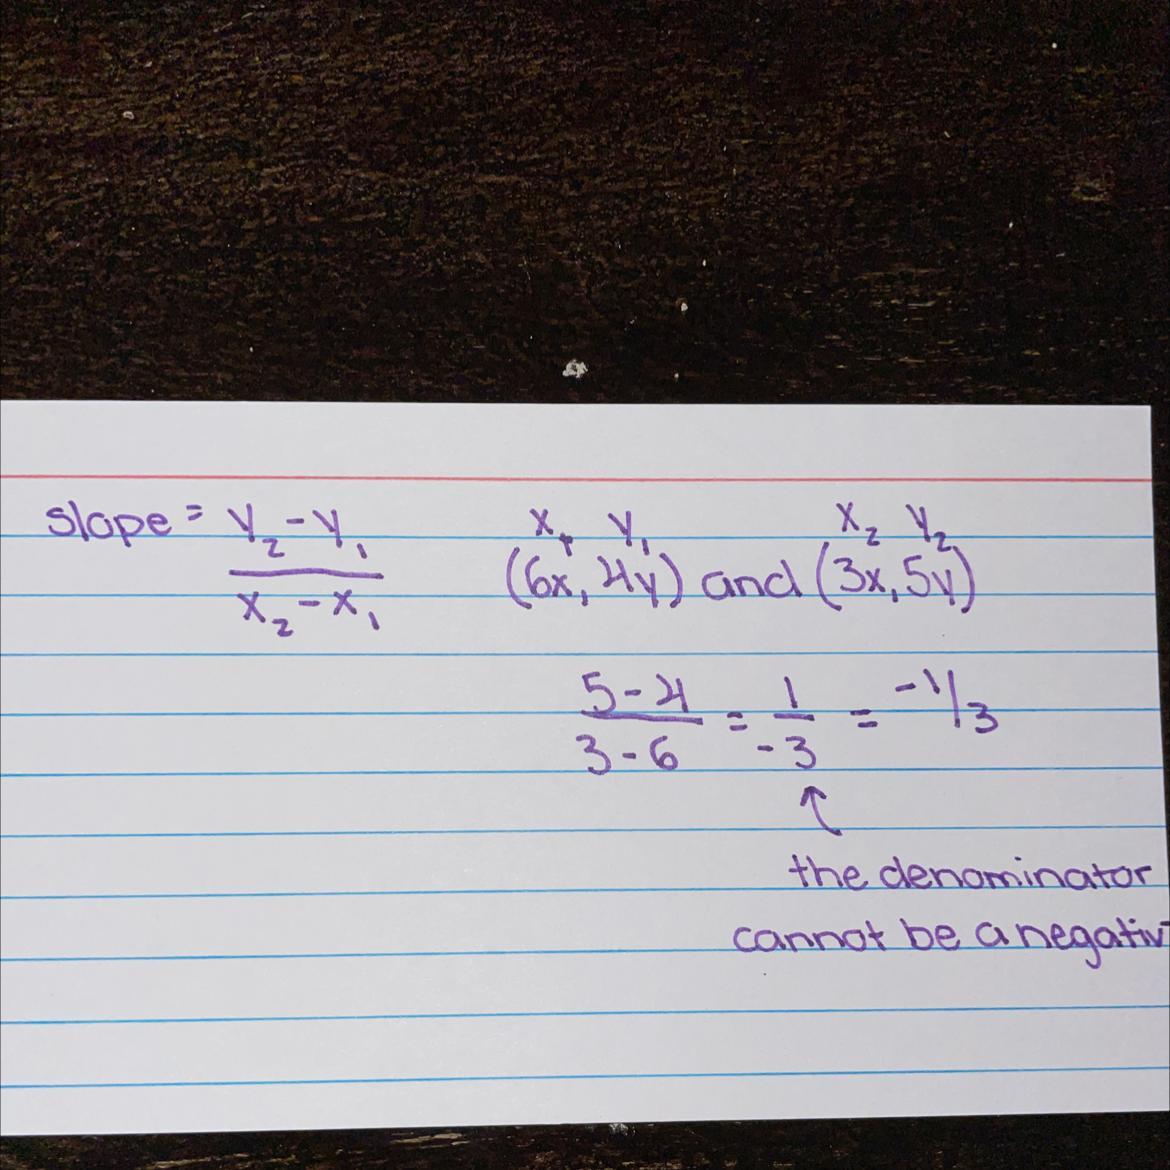 slope = y₂ - y₁ / x₂ - x₁
x₁ y₁ x₂ y₂
(6x, 4y) and (3x, 5y)
5 - 4 / 3 - 6 = 1 / -3 = -1/3
the denominator
cannot be a negativ